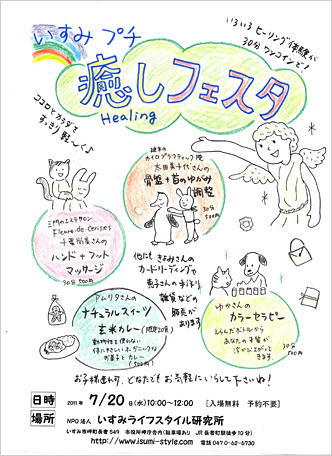 いすみ プチ
癒しフェスタ
Healing
いろいろ ヒーリング体験が
30分 ワンコインで!
ココロとカラダで
すっきり 軽〜く♪
カイロプラクティック院
太田美千代さんの
骨盤+首のゆがみ
調整
30分
500円
三門のエステサロン
Fleurs-de-Cerises
千葉
さんの
ハンド+フット
マッサージ
30分 500円
他にも きよみさんの
カードリーディングや
恵子さんの手作り
雑貨などの
販売が
あります
アムリタさんの
ナチュラルスイーツ
玄米カレー(限定20食)
動物性を使わない
体にやさしいオーガニックな
お菓子と カレー
(500円)
ゆかさんの
カラーセラピー
えらんだボトルから
あなたの本質が
浮かび上がって
きます
30分 500円
お子様連れ可、どなたでもお気軽にいらして下さいね!
日時 2011年 7/20(水)10:00〜12:00 [入場無料 予約不要]
場所 NPO法人 いすみライフスタイル研究所
いすみ市岬町長者549 市役所岬庁舎内(駐車場あり JR長者町駅徒歩10分)
http://www.isumi-style.com 電話 0470-62-6730